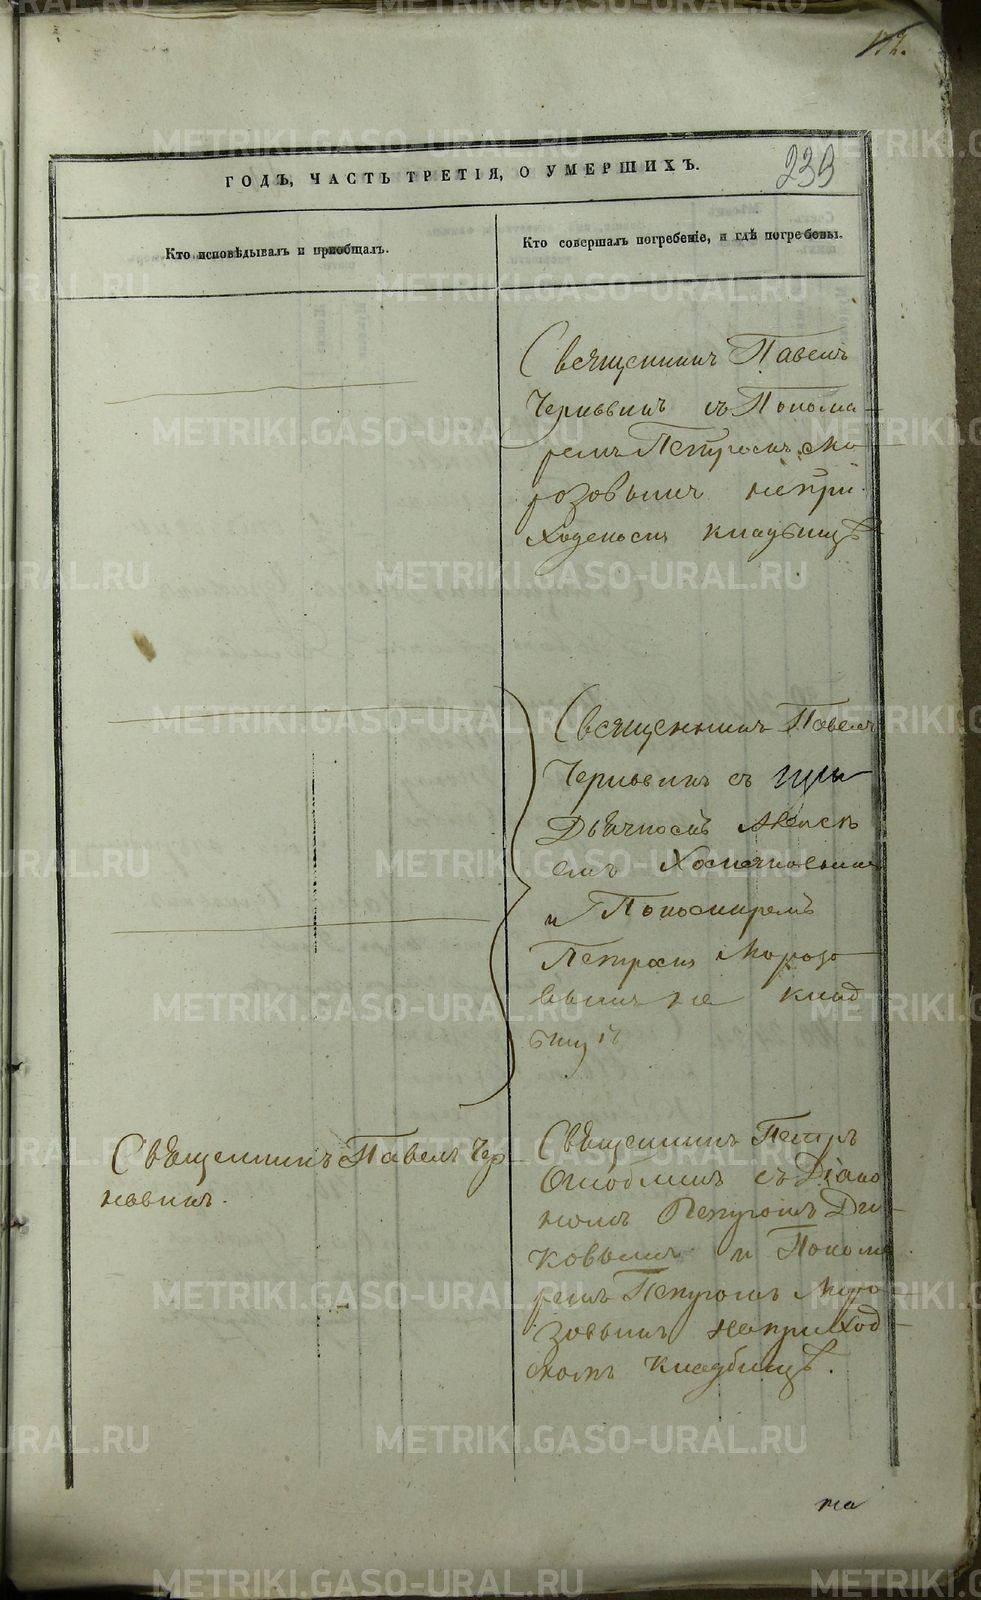 ГОДЪ, ЧАСТЬ ТРЕТІЯ, О УМЕРШИХЪ.
239
Кто исповѣдывалъ и пріобщалъ.
Кто совершалъ погребеніе, и гдѣ погребены.
Священникъ Павелъ
Черновинъ съ Понома
ремъ Петромъ Мо
розовымъ на при
ходскомъ кладбищѣ
Священникъ Павелъ
Черновинъ съ
Дьячкомъ Алексѣ
емъ
и Пономаремъ
Петромъ Морозо
вымъ на клад
бищѣ
Священникъ Павелъ Чер
новинъ.
Священникъ Петръ
съ Діако
номъ Петромъ
ковымъ и Понома
ремъ Петромъ Моро
зовымъ на приход
скомъ кладбищѣ.
на
METRIKI.GASO-URAL.RU